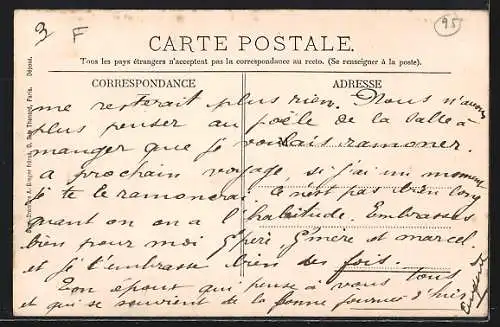 3 F 95
CARTE POSTALE.
Tous les pays étrangers n'acceptent pas la correspondance au recto. (Se renseigner à la poste).
CORRESPONDANCE
ADRESSE
me resterait plus rien. Nous n'avons
plus penser au poële de la salle à
manger que je voulais ramoner
a prochain voyage, si j'ai un moment
je te le ramonerai ce n'est pas bien long
quant on on a l'habitude. Embrasses
bien pour moi Gpère, Gmère et marcel.
et je t'embrasse bien des fois.
Ton époux qui pense à vous tous
et qui se souvient de la bonne journée d'hier